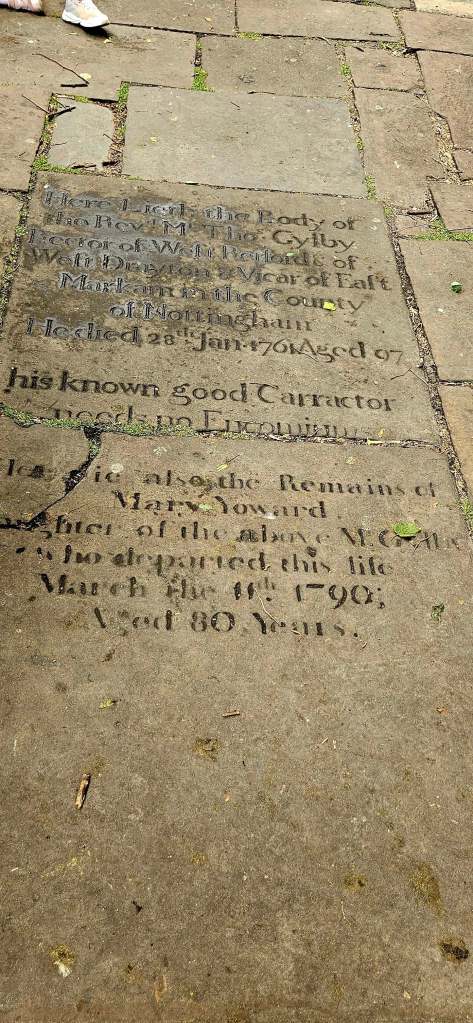 Here Lieth the Body of
the Revd. Mr. Tho.s Gylby
Rector of Weſt Retford & of
Weſt Drayton & Vicar of Eaſt
Markam in the County
of Nottingham
He died 28th Jan. 1761 Aged 97
his known good Carractor
needs no Encomiums
also the Remains of
Mary Yoward
of the above Mr. Gylby
who departed this life
March the 11th. 1790;
Aged 80 Years.